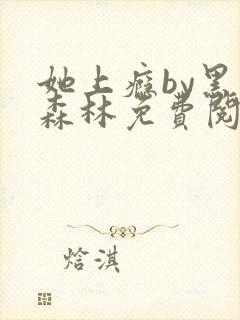 她上瘾by黑
森林免费阅
焓淇